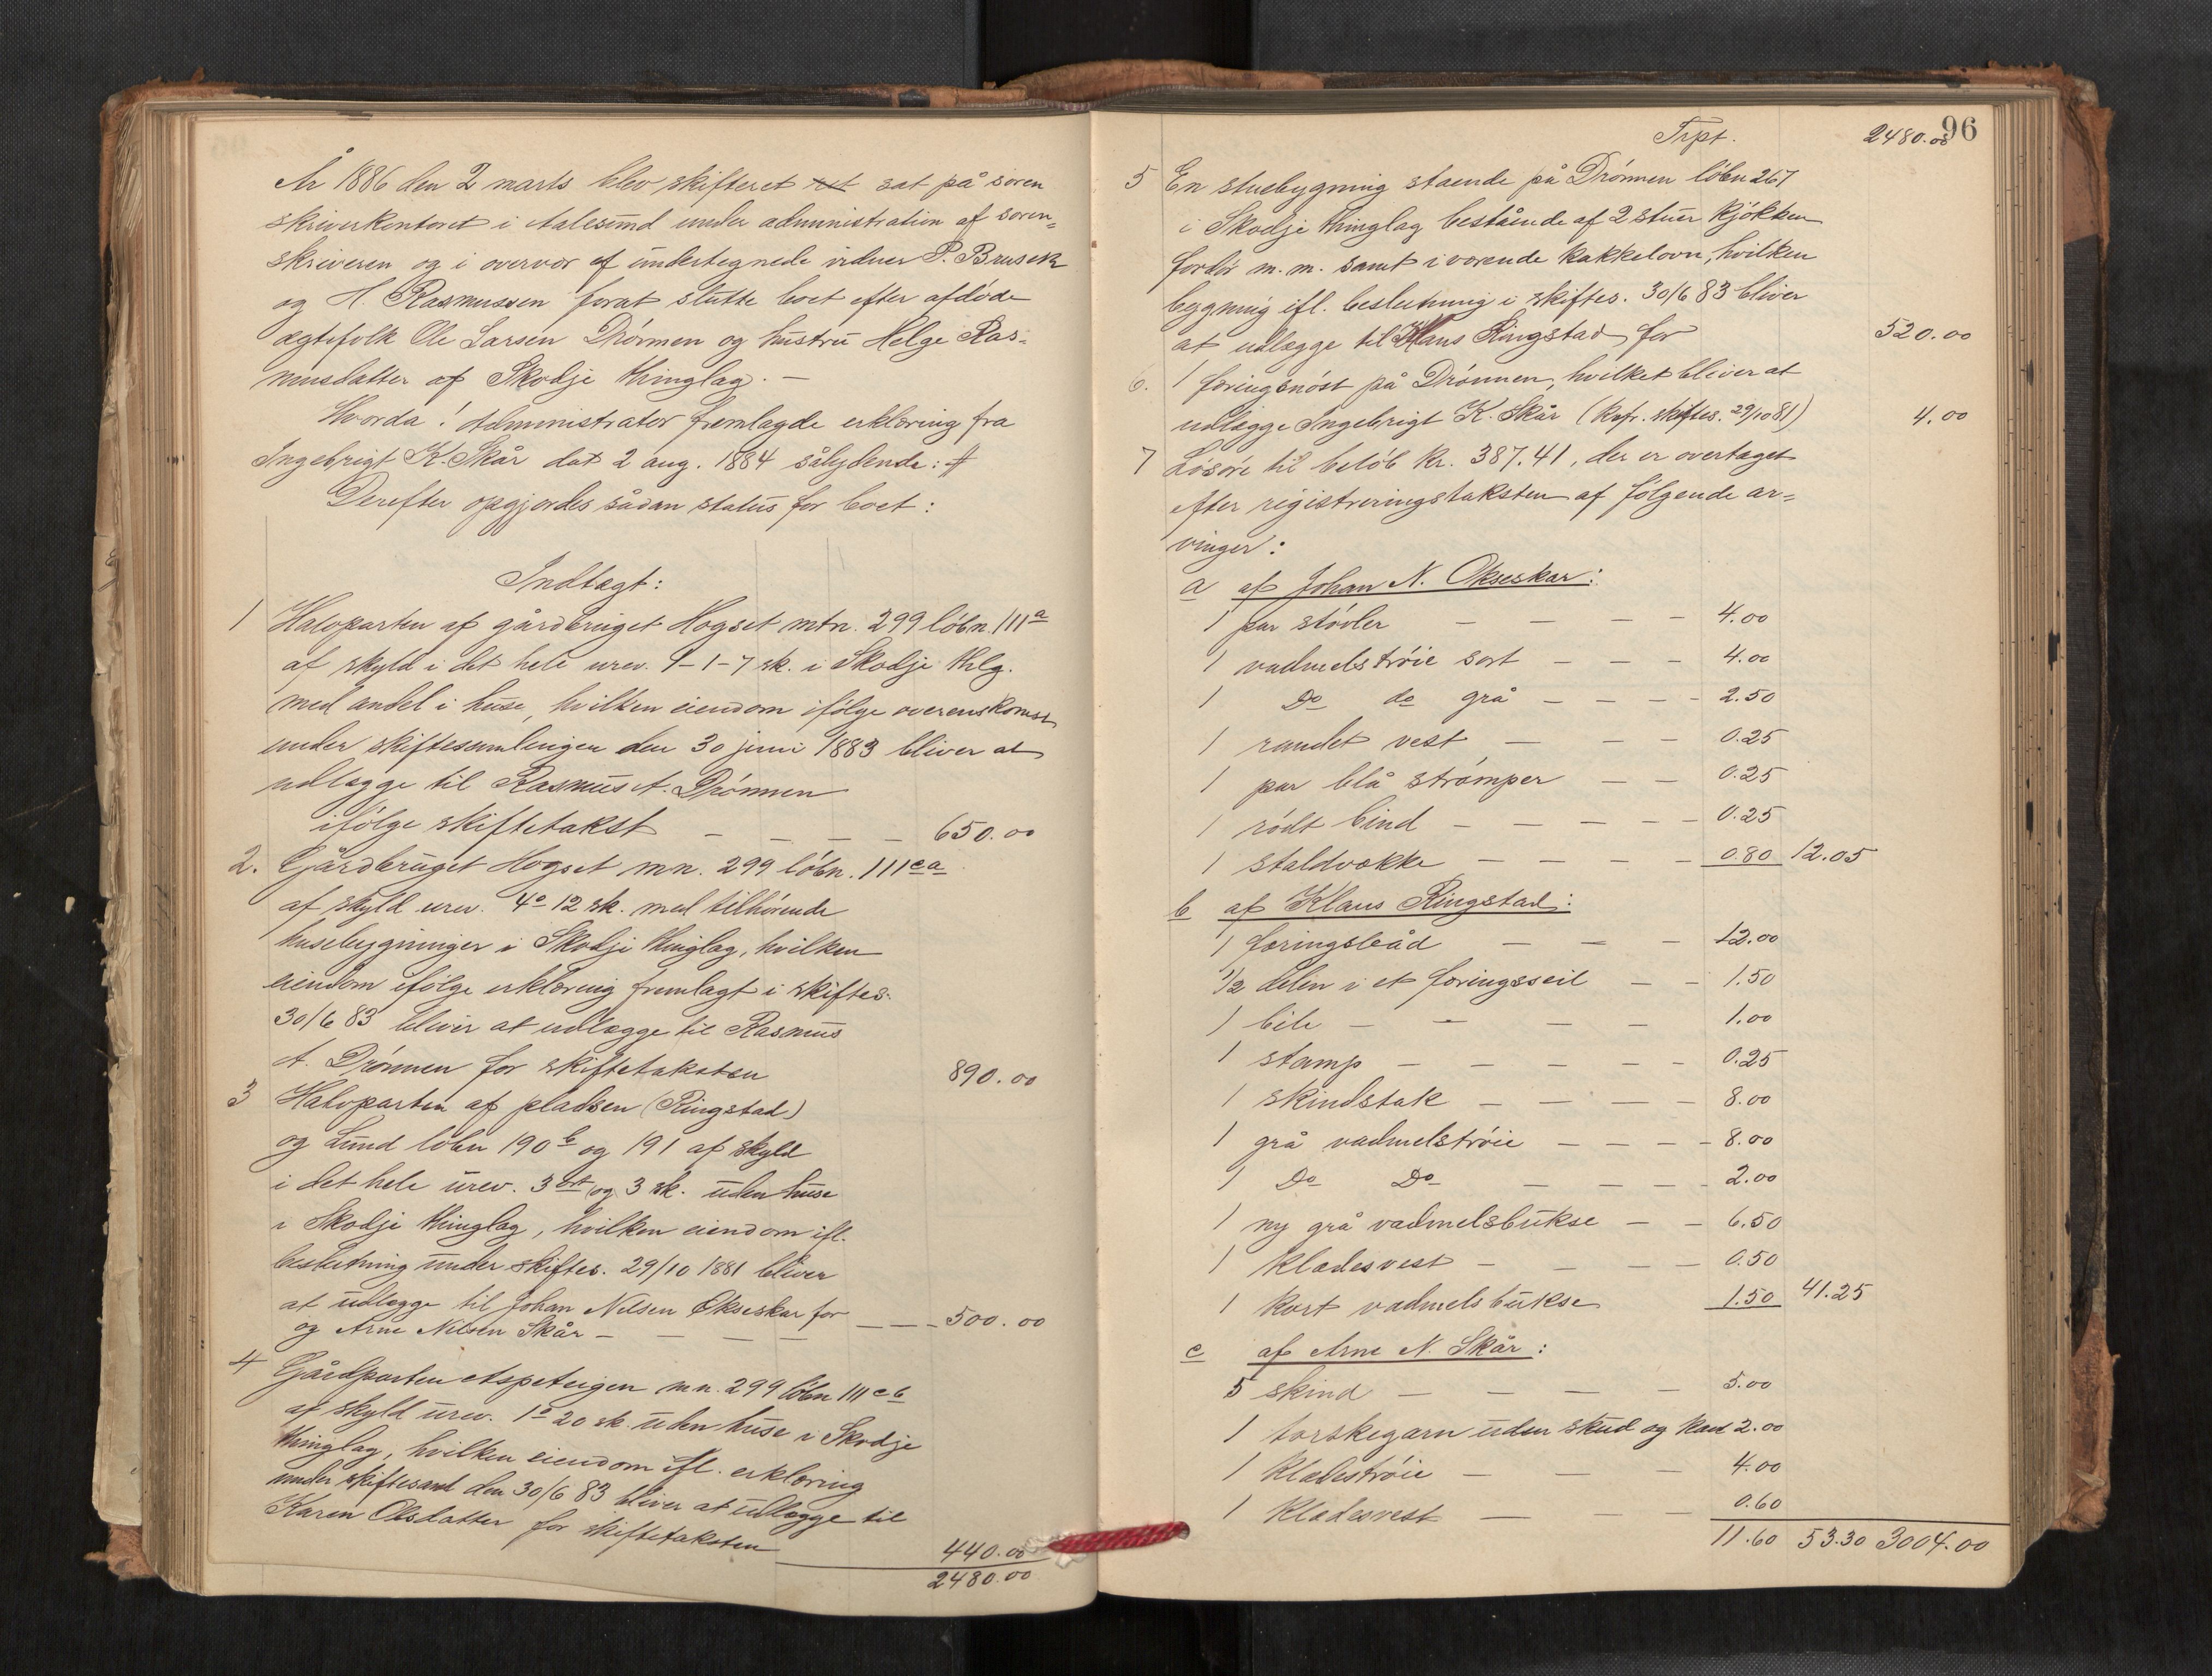 År 1886 den 2 marts blev skifteret ret sat på soren
skriverkontoret i Aalesund under administration af soren=
skriveren og i overvær af undertegnede vidner P. Brusek
og H. Rasmussen forat slutte boet efter afdøde
ægtefolk Ole Larsen Drønnen og hustru Helge Ras=
musdatter af Skodje thinglag. —
Hvorda! Administrator fremlagde erklæring fra
Ingebrigt K. Skår dat 2 aug. 1884 sålydende: #
Derefter opgjordes sådan status for boet:
Indtægt:
1 Halvparten af gårdbruget Hogset mtn. 299 løbn. 111 a
af skyld i det hele urev. 1-1-7 sk. i Skodje thlg.
med andel i huse, hvilken eiendom ifølge overenskomst
under skiftesamlingen den 30 juni 1883 bliver at
udlægge til Rasmus A. Drønnen
ifølge skiftetakst — — — — 650.00
2. Gårdbruget Hogset mn. 299 løbn. 111 ca
af skyld urev. 4o 12 sk. med tilhørende
husebygninger i Skodje thinglag, hvilken
eiendom ifølge erklæring fremlagt i skiftes.
30/6 83 bliver at udlægge til Rasmus
A. Drønnen for skiftetaksten 890.00
3 Halvparten af pladsen (Ringstad)
og Lund løbn 190 b og 191 af skyld
i det hele urev. 3 ort og 3 sk. uden huse
i Skodje thinglag, hvilken eiendom ifl.
beslutning under skiftes. 29/10 1881 bliver
at udlægge til Johan Nilsen Okseskar for
og Arne Nilsen Skår — — — — — — 500.00
4 Gårdparten Aspeteigen mn. 299 løbn 111 cb
af skyld urev. 1o 20 sk. uden huse i Skodje
thinglag, hvilken eiendom ifl. erklæring
under skiftesaml den 30/6 83 bliver at udlægge til
Karen Olsdatter for skiftetaksten 440.00
2480.00
96
Trpt. 2480.00
5 En stuebygning staende på Drønnen løbn 267
i Skodje thinglag bestående af 2 stuer kjøkken
fordør m.m. samt iværende kakkelovn, hvilken
bygning ifl. beslutning i skiftes. 30/6 83 bliver
at udlægge til Klaus Ringstad for 520.00
6. 1 færingsnøst på Drønnen, hvilket bliver at
udlægge Ingebrigt K. Skår (knfr. skiftes. 29/10 81) 4.00
7 Løsøre til beløb kr. 387.41, der er overtaget
efter registreringstaksten af følgende ar=
vinger:
a af Johan N. Okseskar:
1 par støvler — — — — 4.00
1 vadmelstrøie sort — — — 4.00
1 Do do grå — — — — 2.50
1 randet vest — — — 0.25
1 par blå strømper — — 0.25
1 rødt bind — — — — — 0.25
1 staldvække — — — — 0.80 12.05
b af Klaus Ringstad:
1 færingsbåd — — — 12.00
1/2 delen i et færingsseil — — 1.50
1 bile — — — — 1.00
1 stamp — — — — — 0.25
1 skindstak — — — — 8.00
1 grå vadmelstrøie — — — — 8.00
1 Do Do — — — — 2.00
1 ny grå vadmelsbukse — — 6.50
1 klædesvest — — — — 0.50
1 kort vadmelsbukse 1.50 41.25
c af Arne N. Skår:
5 skind — — — — 5.00
1 torskegarn uden skud og kavl 2.00
1 klædestrøie — — — 4.00
1 klædesvest — — — 0.60
11.60 53.30 3004.00